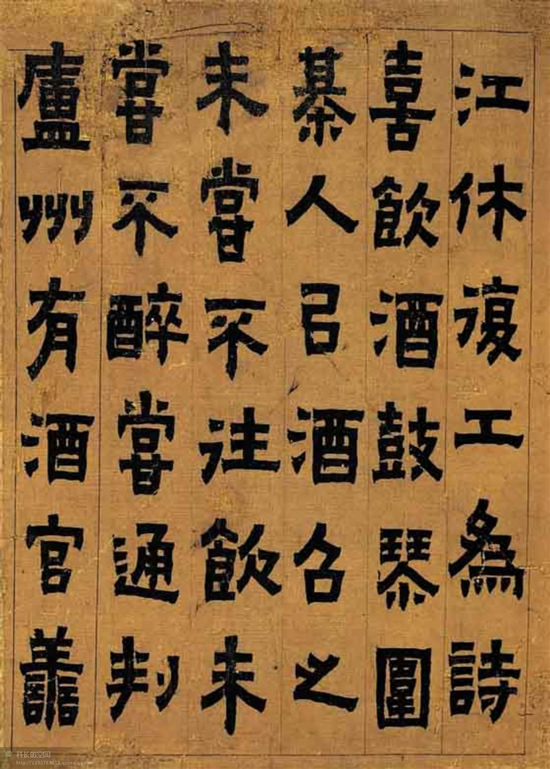 江休復工為詩
喜飲酒鼓琴圍
棊人㠯酒召之
未嘗不往飲未
嘗不醉嘗通判
廬州有酒官譱